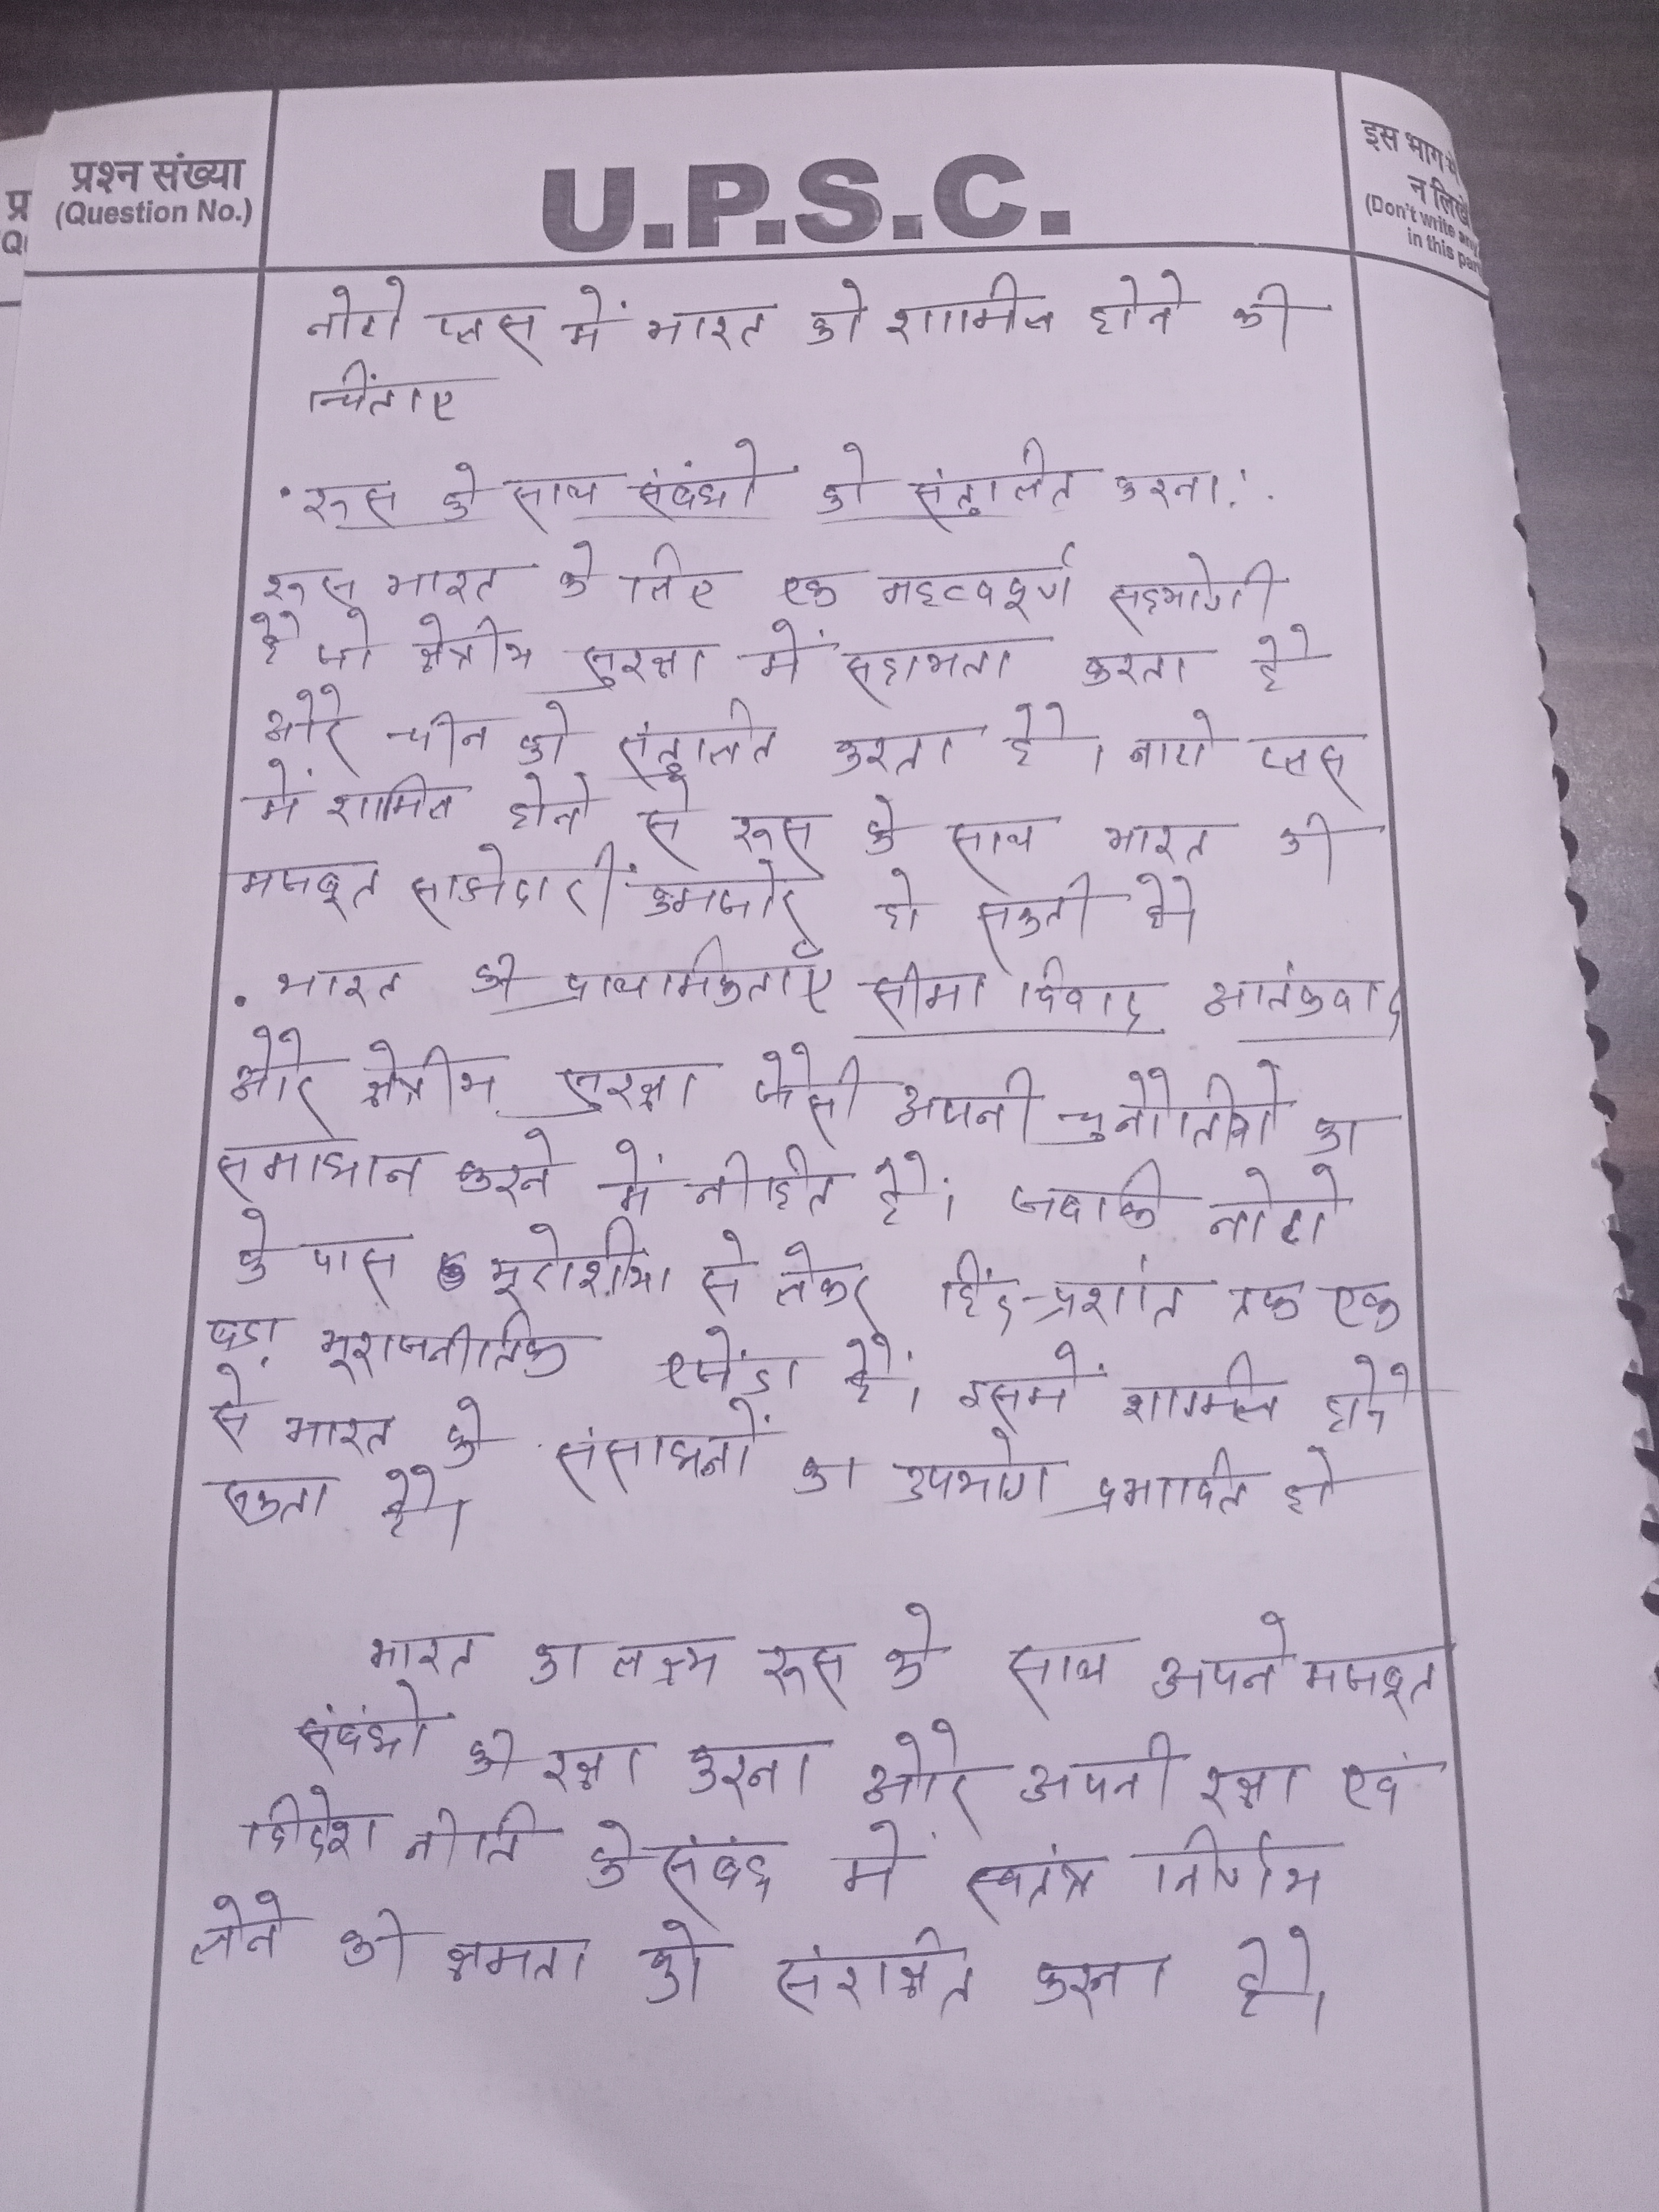 प्रश्न संख्या
(Question No.)
U.P.S.C.
इस भाग में
न लिखें
(Don't write any
in this par
नोटो प्लस में भारत को शामिल होने की
चिंताए
· रूस के साथ संबंधो को संतुलित करना :
रूस भारत के लिए एक महत्वपूर्ण सहयोगी
है जो क्षेत्रीय सुरक्षा में सहायता करता है
और चीन को संतुलित करता है। नाटो प्लस
में शामिल होने से रूस के साथ भारत की
मजबूत साझेदारी कमजोर हो सकती है।
· भारत की प्राथमिकताएँ सीमा विवाद आतंकवाद
और क्षेत्रीय सुरक्षा जैसी अपनी चुनौतीयो का
समाधान करने में नीहित है। जबकि नाटो
के पास यूरोशीया से लेकर हिंद-प्रशांत तक एक
बड़ा भूराजनीतिक एजेंडा है। इसमें शामिल होने
से भारत के संसाधनों का उपयोग प्रभावित हो
सकता है।
भारत का लक्ष्य रूस के साथ अपने मजबूत
संबंधो की रक्षा करना और अपनी रक्षा एवं
विदेश नीति के संबंध में स्वतंत्र निर्णय
लेने की क्षमता को संरक्षित करना है।